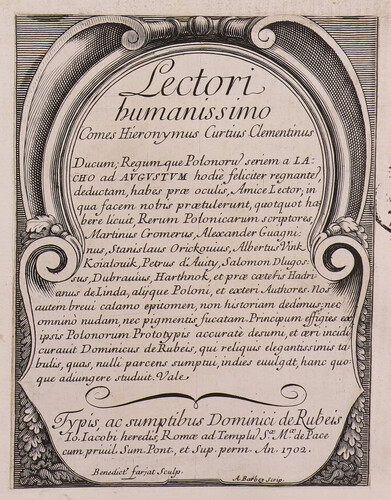 Lectori
humanissimo
Comes Hieronymus Curtius Clementinus
Ducum, Regum que Polonorū seriem a LA-
CHO ad AVGVSTVM hodiè feliciter regnantē,
deductam, habes præ oculis, Amice Lector; in
qua facem nobis prætulerunt, quotquot ha-
bere licuit, Rerum Polonicarum scriptores,
Martinus Cromerus, Alexander Guagni-
nus, Stanislaus Orickouius, Albertus Vink
Koialouik, Petrus d'Auity, Salomon Dlugos-
sus, Dubrauius, Harthnok, et præ cæteris Hadri-
anus de Linda, alijsque Poloni, et exteri Authores. Nos
autem breui calamo epitomen, non historiam dedimus; nec
omninò nudam, nec pigmentis fucatam. Principum effigies ex
ipsis Polonorum Prototypis accuratè desumi, et æri incidi
curauit Dominicus de Rubeis, qui reliquis elegantissimis ta-
bulis, quas, nulli parcens sumptui, indies euulgat, hanc quo-
que adiungere studuit. Vale.
Typis, ac sumptibus Dominici de Rubeis
Io. Iacobi heredis, Romæ ad Templū Sæ. Mæ. de Pace
cum priuil. Sum. Pont., et Sup. perm. An. 1702.
Benedict. farjat Sculp.
A. Barbey Scrip.